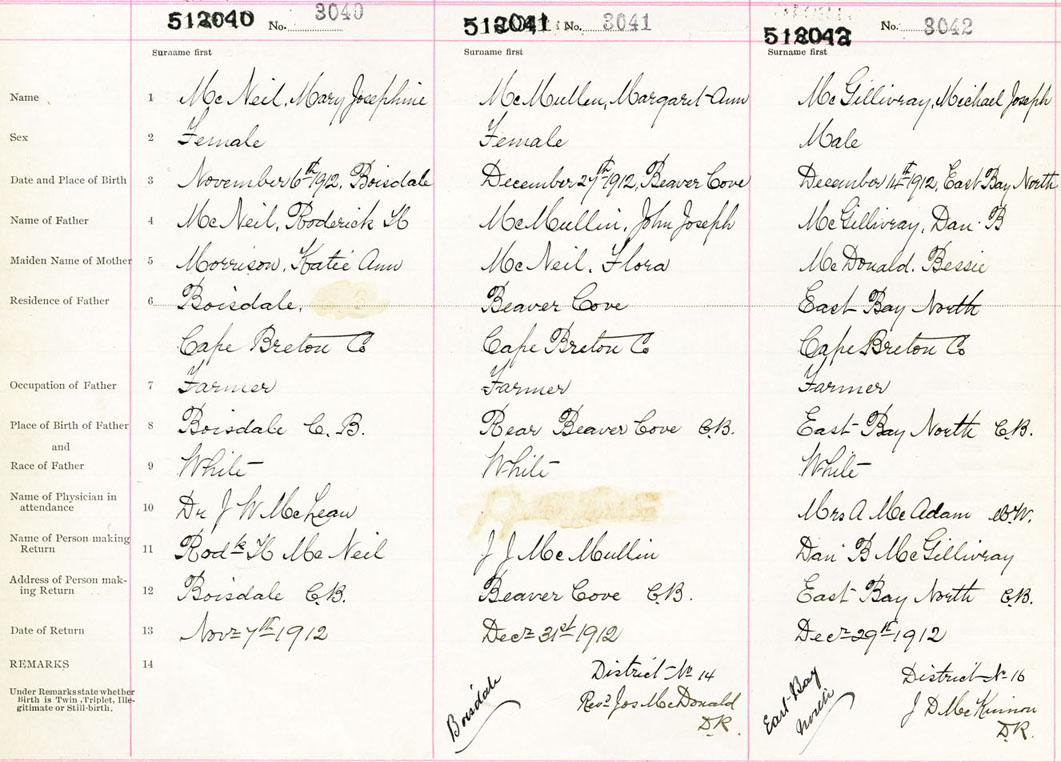 512040 No. 3040 512041 No. 3041 512042 No. 3042
Surname first Surname first Surname first
Name 1 McNeil, Mary Josephine McMullen, Margaret Ann McGillivray, Michael Joseph
Sex 2 Female Female Male
Date and Place of Birth 3 November 6th 1912, Boisdale December 27th 1912, Beaver Cove December 14th 1912, East Bay North
Name of Father 4 McNeil, Roderick H McMullin, John Joseph McGillivray, Dan B
Maiden Name of Mother 5 Morrison, Katie Ann McNeil, Flora McDonald, Bessie
Residence of Father 6 Boisdale, Beaver Cove East Bay North
Cape Breton Co Cape Breton Co Cape Breton Co
Occupation of Father 7 Farmer Farmer Farmer
Place of Birth of Father 8 Boisdale C.B. Rear Beaver Cove C.B. East Bay North C.B.
and
Race of Father 9 White White White
Name of Physician in
attendance 10 Dr J W McLean Mrs A McAdam M.W.
Name of Person making
Return 11 Rodk H McNeil J J McMullin Dan B McGillivray
Address of Person mak-
ing Return 12 Boisdale C.B. Beaver Cove C.B. East Bay North C.B.
Date of Return 13 Novr 7th 1912 Decr 31st 1912 Decr 29th 1912
REMARKS 14 District No 14 District No 16
Under Remarks state whether
Birth is Twin, Triplet, Ille-
gitimate or Still-birth.
Boisdale
Revd Jos McDonald
D.R.
East Bay
North
J D McKinnon
D.R.